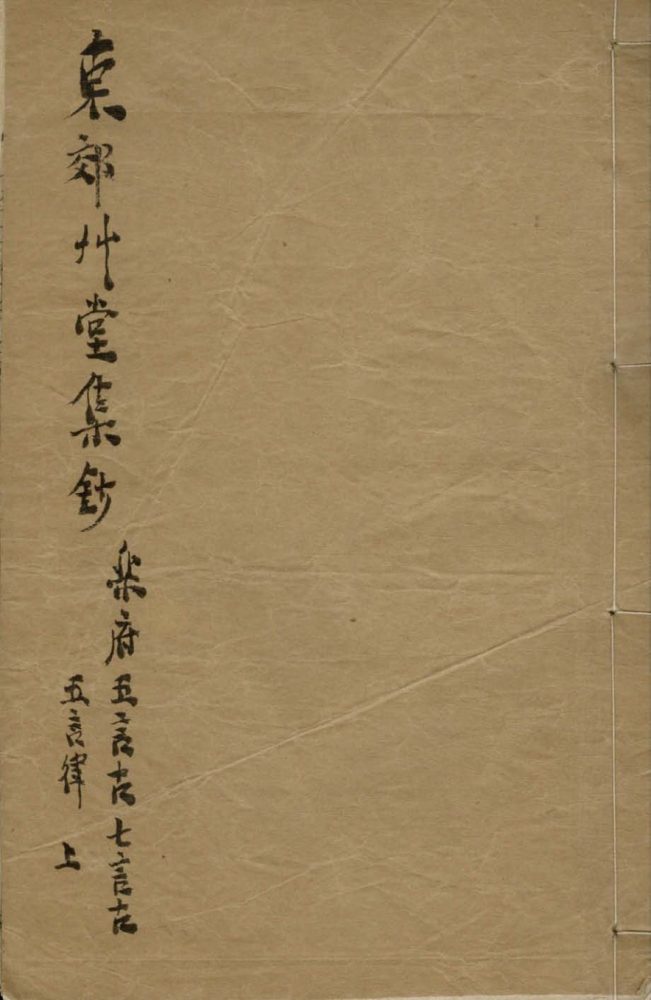 東郊艸堂集鈔
樂府五言古七言古
五言律 上